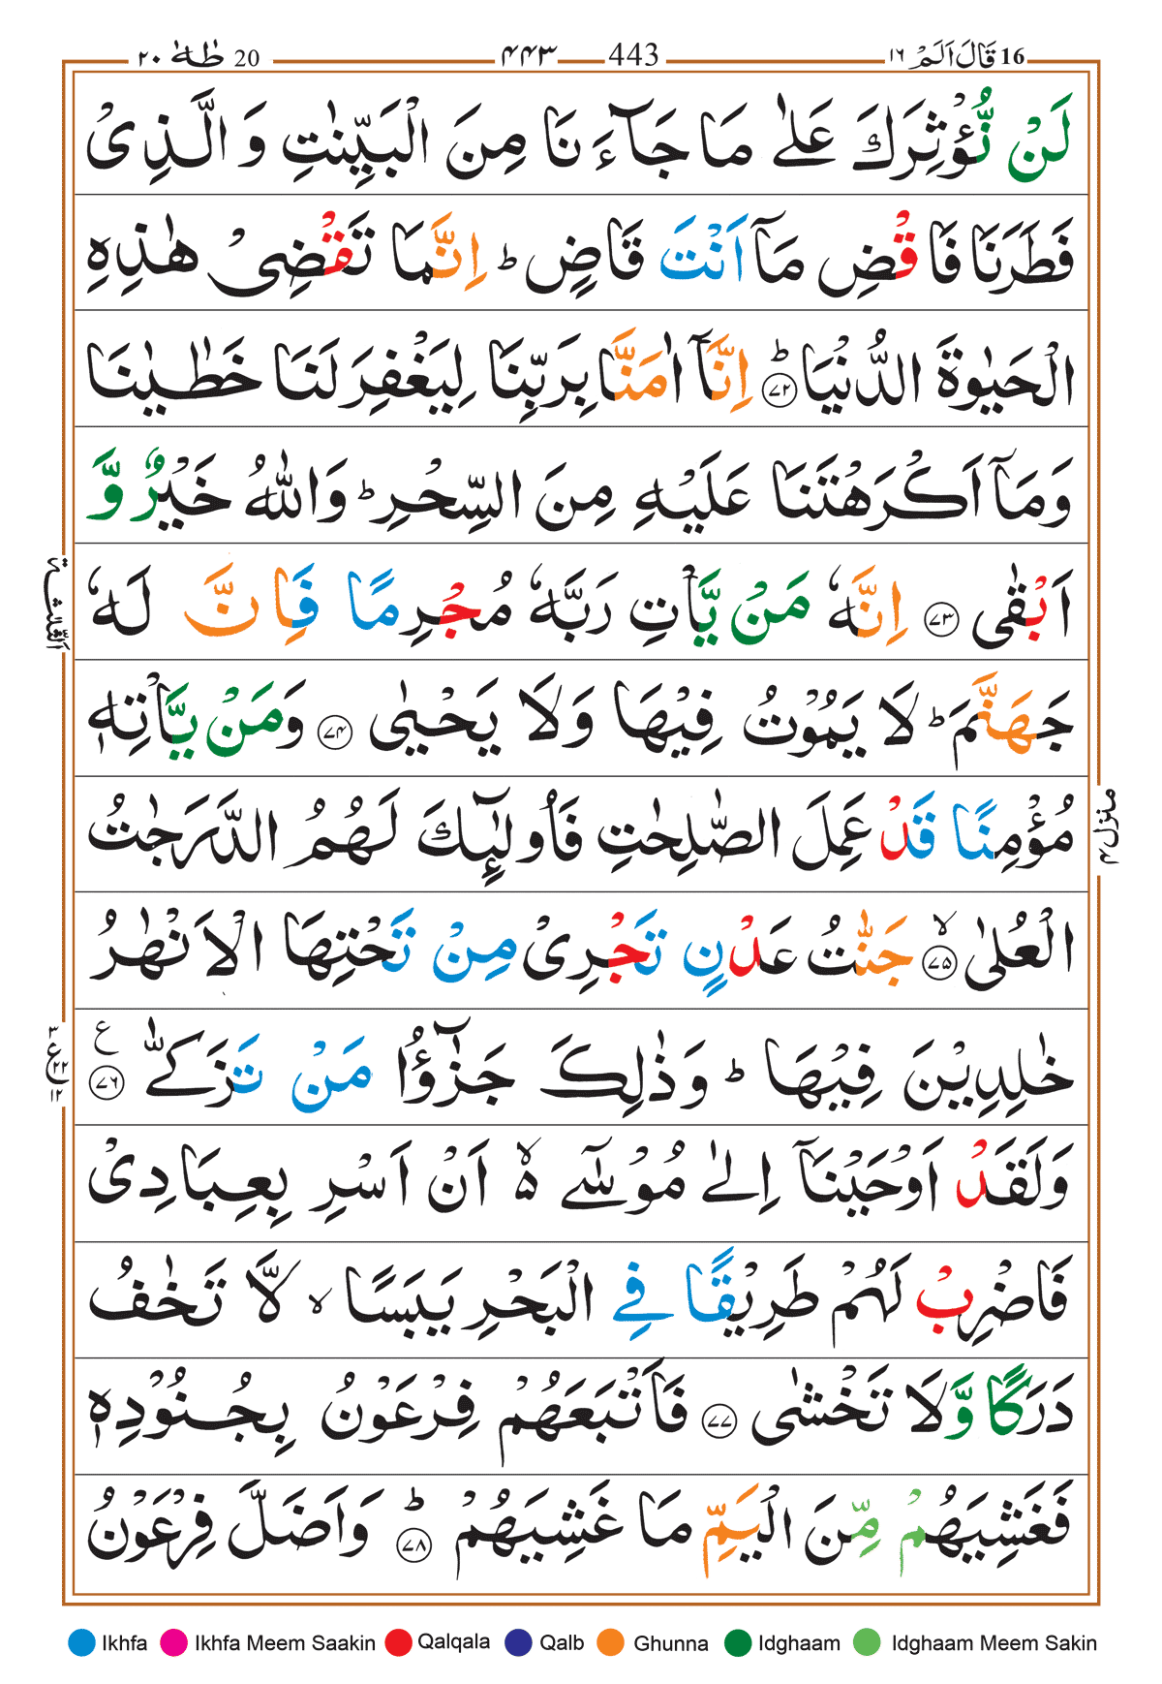 20 طٰهٰ ٢٠ ۴۴۳ 443 16 قَالَ اَلَمْ ١٦
لَنْ نُّؤْثِرَكَ عَلٰى مَا جَآءَنَا مِنَ الْبَيِّنٰتِ وَ الَّذِىْ
فَطَرَنَا فَاقْضِ مَاۤ اَنْتَ قَاضٍ ؕ اِنَّمَا تَقْضِىْ هٰذِهِ
الْحَيٰوةَ الدُّنْيَا ؕ ﴿۷۲﴾ اِنَّاۤ اٰمَنَّا بِرَبِّنَا لِيَغْفِرَ لَنَا خَطٰيٰنَا
وَمَاۤ اَكْرَهْتَنَا عَلَيْهِ مِنَ السِّحْرِ ؕ وَاللّٰهُ خَيْرٌ وَّ
اَبْقٰى ﴿۷۳﴾ اِنَّهٗ مَنْ يَّاْتِ رَبَّهٗ مُجْرِمًا فَاِنَّ لَهٗ
جَهَنَّمَ ؕ لَا يَمُوْتُ فِيْهَا وَلَا يَحْيٰى ﴿۷۴﴾ وَمَنْ يَّاْتِهٖ
مُؤْمِنًا قَدْ عَمِلَ الصّٰلِحٰتِ فَاُولٰٓئِكَ لَهُمُ الدَّرَجٰتُ
الْعُلٰى ۙ ﴿۷۵﴾ جَنّٰتُ عَدْنٍ تَجْرِىْ مِنْ تَحْتِهَا الْاَنْهٰرُ
خٰلِدِيْنَ فِيْهَا ؕ وَذٰلِكَ جَزٰٓؤُا مَنْ تَزَكّٰى ﴿۷۶﴾ ع
وَلَقَدْ اَوْحَيْنَاۤ اِلٰى مُوْسٰٓى ۙ۬ اَنْ اَسْرِ بِعِبَادِىْ
فَاضْرِبْ لَهُمْ طَرِيْقًا فِى الْبَحْرِ يَبَسًا ۙ لَّا تَخٰفُ
دَرَكًا وَّلَا تَخْشٰى ﴿۷۷﴾ فَاَتْبَعَهُمْ فِرْعَوْنُ بِجُنُوْدِهٖ
فَغَشِيَهُمْ مِّنَ الْيَمِّ مَا غَشِيَهُمْ ؕ ﴿۷۸﴾ وَاَضَلَّ فِرْعَوْنُ
الثلثة
منزل ۴
Ikhfa Ikhfa Meem Saakin Qalqala Qalb Ghunna Idghaam Idghaam Meem Sakin